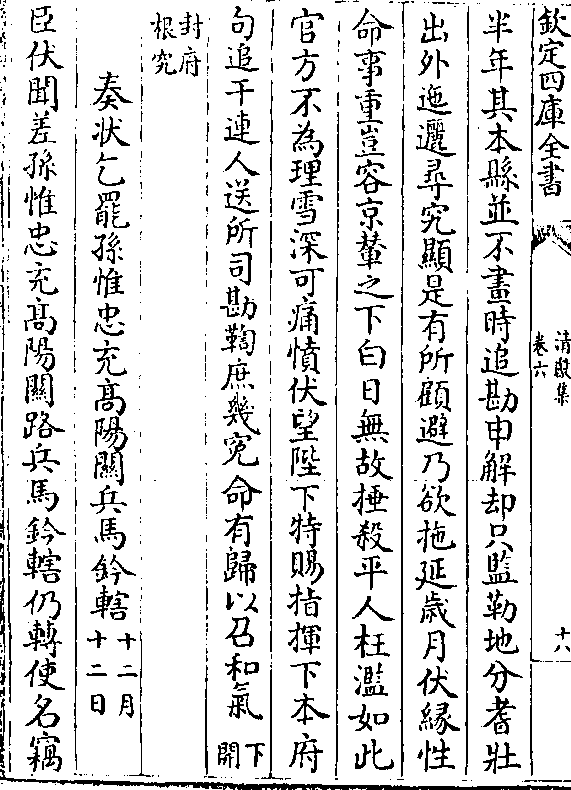 欽定四庫全書
清獻集
卷六
十六
半年其本縣並不畫時追勘申解却只監勒地分耆壯
出外迤邐尋究顯是有所顧避乃欲拖延歲月伏緣性
命事重豈容京輦之下白日無故捶殺平人枉濫如此
官方不為理雪深可痛憤伏望陛下特賜指揮下本府
句追干連人送所司勘鞫庶幾寃命有歸以召和氣下開
封府根究
奏狀乞罷孫惟忠充高陽關兵馬鈐轄十二月十二日
臣伏聞差孫惟忠充高陽關路兵馬鈐轄仍轉使名竊